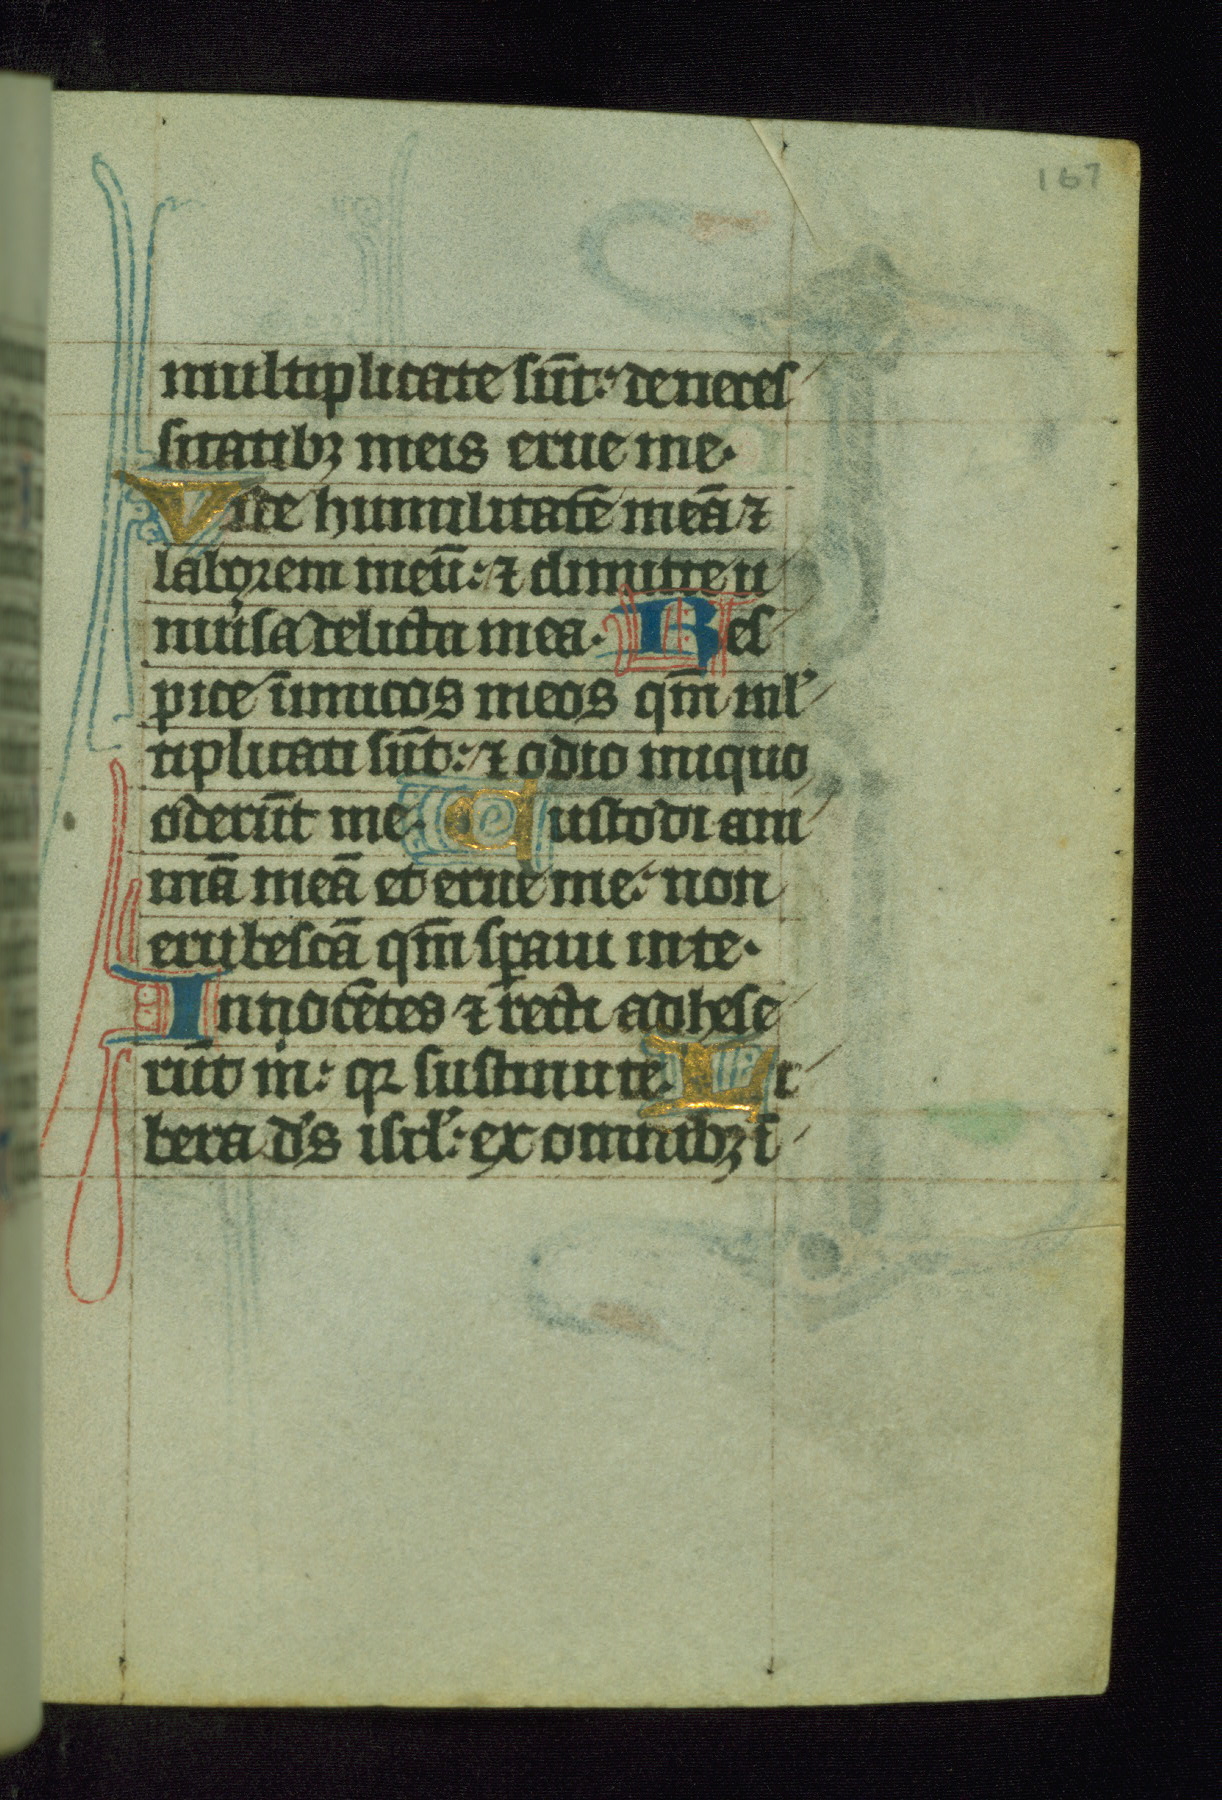 167
multiplicate sūt: de neces
sitatibꝫ meis erue me.
Vide humilitatē meā ⁊
laborem meū: ⁊ dimitte u
niuʼsa delicta mea. Res
pice īimicos meos qm̄ mlʼ
tiplicati sūt: ⁊ odio iniquo
oderūt me. Custodi ani
mā meā et erue me: non
erubescā qm̄ sꝑaui in te.
Innocētes ⁊ recti adhese
rūt m̄: qꝛ sustinui te. Li
bera dʼs isrlʼ: ex omnibꝫ t̄